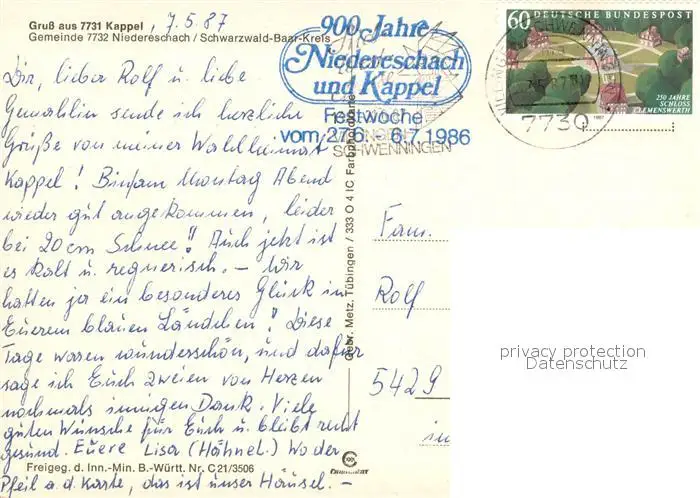 Gruß aus 7731 Kappel, 7.5.87
Gemeinde 7732 Niedereschach / Schwarzwald-Baar-Kreis
Dir, lieber Rolf u. liebe
Gemahlin sende ich herzliche
Grüße von meiner Wahlheimat
Kappel! Bin am Montag Abend
wieder gut angekommen, leider
bei 20 cm Schnee! Auch jetzt ist
es kalt u. regnerisch. – Wir
hatten ja ein besonderes Glück in
Euerem blauen Ländchen! Diese
Tage waren wunderschön, und dafür
sage ich Euch zweien von Herzen
nochmals innigen Dank. Viele
guten Wünsche für Euch u. bleibt recht
gesund. Euere Lisa (Hähnel.) Wo der
Pfeil a.d. Karte, das ist unser Häusel. –
Freigeg. d. Inn.-Min. B.-Württ. Nr. C 21/3506
Gebr. Metz, Tübingen / 333 O 4 IC Farbphotokarte
900 Jahre
Niedereschach
und Kappel
Festwoche
vom 27.6. - 6.7.1986
SCHWENNINGEN
60 DEUTSCHE BUNDESPOST
250 JAHRE
SCHLOSS
CLEMENSWERTH
1987
7730
Fam.
Rolf
5429
in
privacy protection
Datenschutz